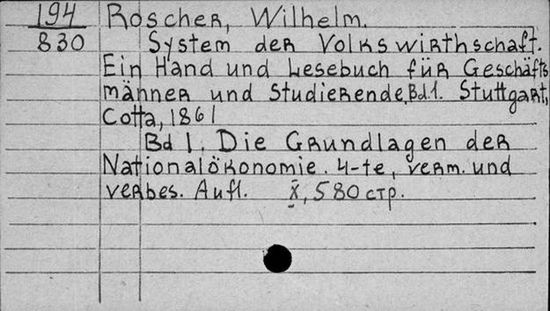 194 Roscher, Wilhelm.
830 System der Volkswirthschaft.
Ein Hand und Lesebuch für Geschäfts
männer und Studierende, Bd.1. Stuttgart,
Cotta, 1861
Bd 1. Die Grundlagen der
Nationalökonomie. 4-te, verm. und
verbes. Aufl. X, 580 стр.